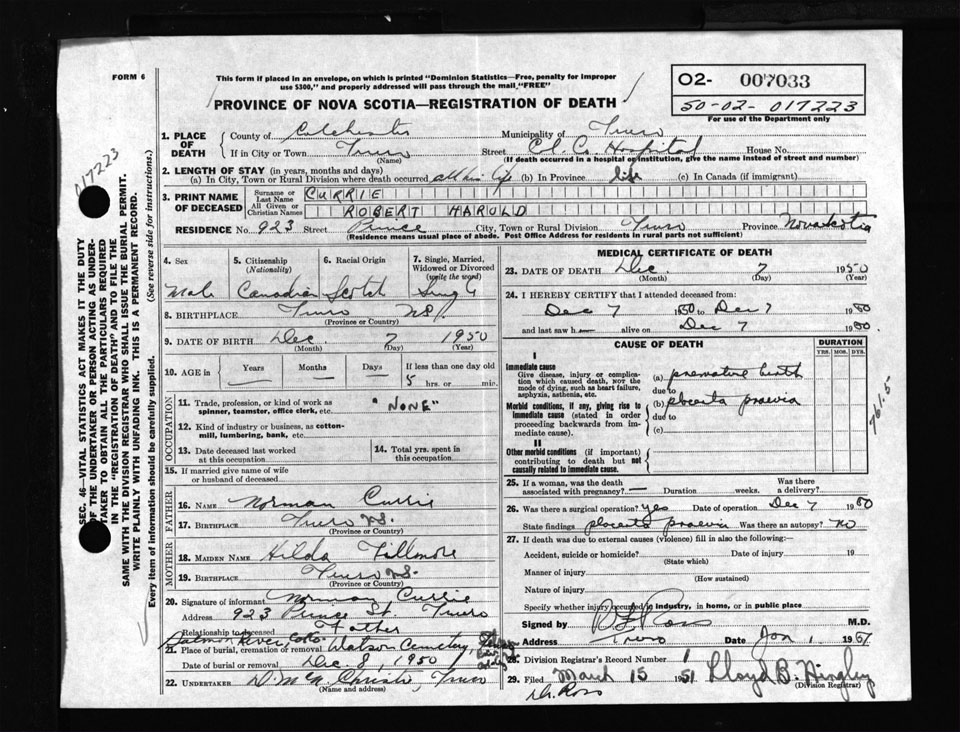 FORM 6
This form if placed in an envelope, on which is printed "Dominion Statistics—Free, penalty for improper
use $300," and properly addressed will pass through the mail "FREE"
PROVINCE OF NOVA SCOTIA—REGISTRATION OF DEATH
02- 007033
50-02-017223
For use of the Department only
017223
SEC. 46—VITAL STATISTICS ACT MAKES IT THE DUTY
OF THE UNDERTAKER OR PERSON ACTING AS UNDER-
TAKER TO OBTAIN ALL THE PARTICULARS REQUIRED
IN THE "REGISTRATION OF DEATH" AND TO FILE THE
SAME WITH THE DIVISION REGISTRAR WHO SHALL ISSUE THE BURIAL PERMIT.
WRITE PLAINLY WITH UNFADING INK. THIS IS A PERMANENT RECORD.
Every item of information should be carefully supplied. (See reverse side for instructions.)
1. PLACE OF DEATH County of Colchester Municipality of Truro
If in City or Town Truro Street Col. Co. Hospital House No.
(Name) (If death occurred in a hospital or institution, give the name instead of street and number)
2. LENGTH OF STAY (in years, months and days)
(a) In City, Town or Rural Division where death occurred all his life (b) In Province life (c) In Canada (if immigrant)
3. PRINT NAME OF DECEASED Surname or Last Name CURRIE
All Given or Christian Names ROBERT HAROLD
RESIDENCE No. 923 Street Prince City, Town or Rural Division Truro Province Nova Scotia
(Residence means usual place of abode. Post Office Address for residents in rural parts not sufficient)
4. Sex 5. Citizenship (Nationality) 6. Racial Origin 7. Single, Married, Widowed or Divorced (write the word)
Male Canadian Scotch Single
8. BIRTHPLACE Truro N.S.
(Province or Country)
9. DATE OF BIRTH Dec. 7 1950
(Month) (Day) (Year)
10. AGE in Years Months Days If less than one day old
— — — 5 hrs. or min.
OCCUPATION
11. Trade, profession, or kind of work as
spinner, teamster, office clerk, etc. "NONE"
12. Kind of industry or business, as cotton-
mill, lumbering, bank, etc.
13. Date deceased last worked
at this occupation
14. Total yrs. spent in
this occupation
15. If married give name of wife
or husband of deceased
FATHER
16. NAME Norman Currie
17. BIRTHPLACE Truro N.S.
(Province or Country)
MOTHER
18. MAIDEN NAME Hilda Fillmore
19. BIRTHPLACE Truro N.S.
(Province or Country)
20. Signature of informant Norman Currie
Address 923 Prince St. Truro
Relationship to deceased Father
Salmon River, Colc.
21. Place of burial, cremation or removal Watson Cemetery,
Date of burial or removal Dec 8, 1950
22. UNDERTAKER D. McA. Christie, Truro
(Name and address)
MEDICAL CERTIFICATE OF DEATH
23. DATE OF DEATH Dec. 7 1950
(Month) (Day) (Year)
24. I HEREBY CERTIFY that I attended deceased from:
Dec 7 1950 to Dec 7 1950
and last saw h alive on Dec 7 1950.
CAUSE OF DEATH DURATION
YRS. MOS. DYS.
I
Immediate cause
Give disease, injury or complica-
tion which caused death, NOT the
mode of dying, such as heart failure,
asphyxia, asthenia, etc.
(a) premature birth
due to
Morbid conditions, if any, giving rise to
immediate cause (stated in order
proceeding backwards from im-
mediate cause).
(b) placenta praevia
due to
(c)
II
Other morbid conditions (if important)
contributing to death but not
causally related to immediate cause.
761.5
25. If a woman, was the death
associated with pregnancy? — Duration weeks. Was there
a delivery?
26. Was there a surgical operation? yes Date of operation Dec 7 1950
State findings placenta praevia Was there an autopsy? No
27. If death was due to external causes (violence) fill in also the following:—
Accident, suicide or homicide? Date of injury 19
(State which)
Manner of injury
(How sustained)
Nature of injury
Specify whether injury occurred in industry, in home, or in public place
Signed by Ross M.D.
Address Truro Date Jan 1 1951
28. Division Registrar's Record Number 1
29. Filed March 15 1951 Lloyd B. Hingley
(Division Registrar)
Dr. Ross